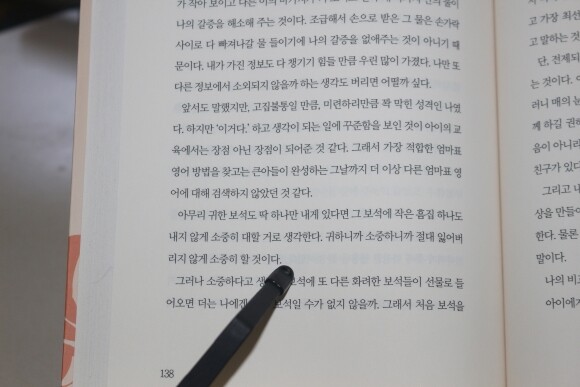 나의 갈증을 해소해 주는 것이다. 조급해서 손으로 받은 그 물은 손가락
사이로 다 빠져나갈 물 들이기에 나의 갈증을 없애주는 것이 아니기 때
문이다. 내가 가진 정보도 다 챙기기 힘들 만큼 우린 많이 가졌다. 나만 또
다른 정보에서 소외되지 않을까 하는 생각도 버리면 어떨까 싶다.
앞서도 말했지만, 고집불통일 만큼, 미련하리만큼 꽉 막힌 성격인 나였
다. 하지만 '이거다.' 하고 생각이 되는 일에 꾸준함을 보인 것이 아이의 교
육에서는 장점 아닌 장점이 되어준 것 같다. 그래서 가장 적합한 엄마표
영어 방법을 찾고는 큰아들이 완성하는 그날까지 더 이상 다른 엄마표 영
어에 대해 검색하지 않았던 것 같다.
아무리 귀한 보석도 딱 하나만 내게 있다면 그 보석에 작은 흠집 하나도
내지 않게 소중히 대할 거로 생각한다. 귀하니까 소중하니까 절대 잃어버
리지 않게 소중히 할 것이다.
그러나 소중하다고 보석에 또 다른 화려한 보석들이 선물로 들
어오면 더는 나에게 보석일 수가 없지 않을까. 그래서 처음 보석을
138
고 가장 최선
고 말하는 것
단, 전제되
는 것이다.
러니 매의 눈
께 하길 권하
음이 아니라
친구가 있다
그리고 나
상을 만들어
한다. 물론
말이다.
나의 비
아이에게